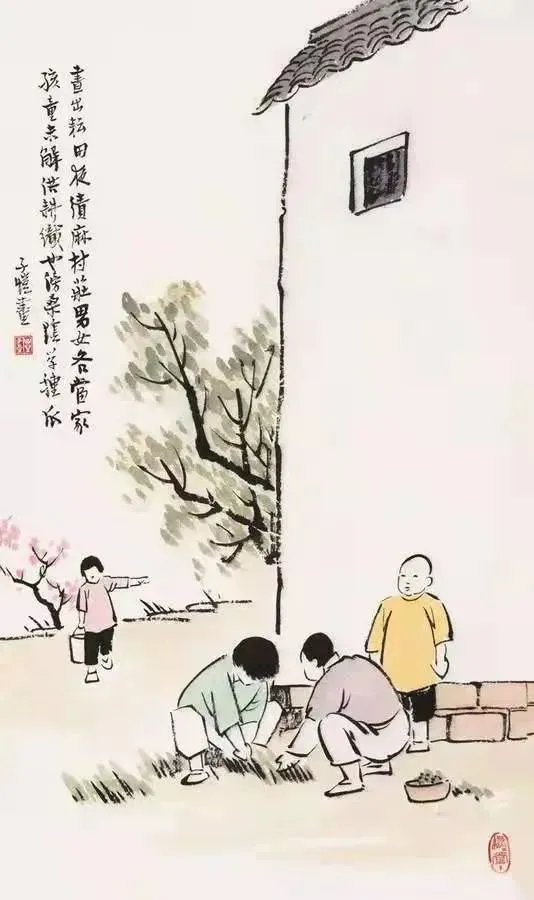 晝出耘田夜績麻村莊男女各當家
孩童未解供耕織也傍桑陰学種瓜
子愷畫